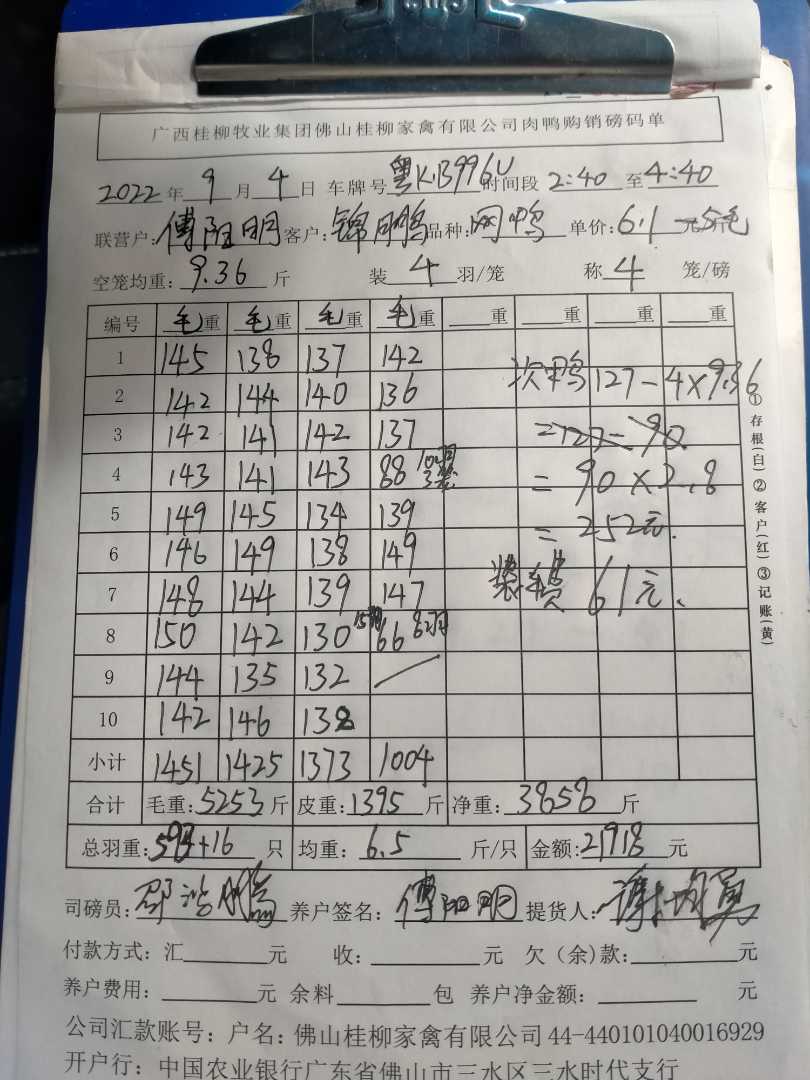 广西桂柳牧业集团佛山桂柳家禽有限公司肉鸭购销磅码单
2022年9月4日 车牌号粤K·B996U时间段2:40至4:40
联营户:傅阳明客户:锦鹏品种: 鸭 单价:6.1
空笼均重:9.36斤 装4羽/笼 称4笼/磅
编号 毛重 毛重 毛重 毛重 重 重 重 重
1 145 138 137 142
2 142 144 140 136 次鸭127-4×9.36
3 142 141 142 137 =127-90
4 143 141 143 88 10羽 3笼 =90×2.8
5 149 145 134 139 =252元.
6 146 149 138 149
7 148 144 139 147 装车费61元.
8 150 142 130 66 8羽
9 144 135 132
10 142 146 138
小计 1451 1425 1373 1004
合计 毛重:5253斤 皮重:1395斤 净重:3858斤
总羽重: +16只 均重:6.5斤/只 金额:21918元
司磅员: 养户签名:傅阳明 提货人:
付款方式:汇 元 收: 元 欠(余)款: 元
养户费用: 元 余料 包 养户净金额: 元
公司汇款账号:户名:佛山桂柳家禽有限公司44-440101040016929
开户行:中国农业银行广东省佛山市三水区三水时代支行
①存根(白)②客户(红)③记账(黄)